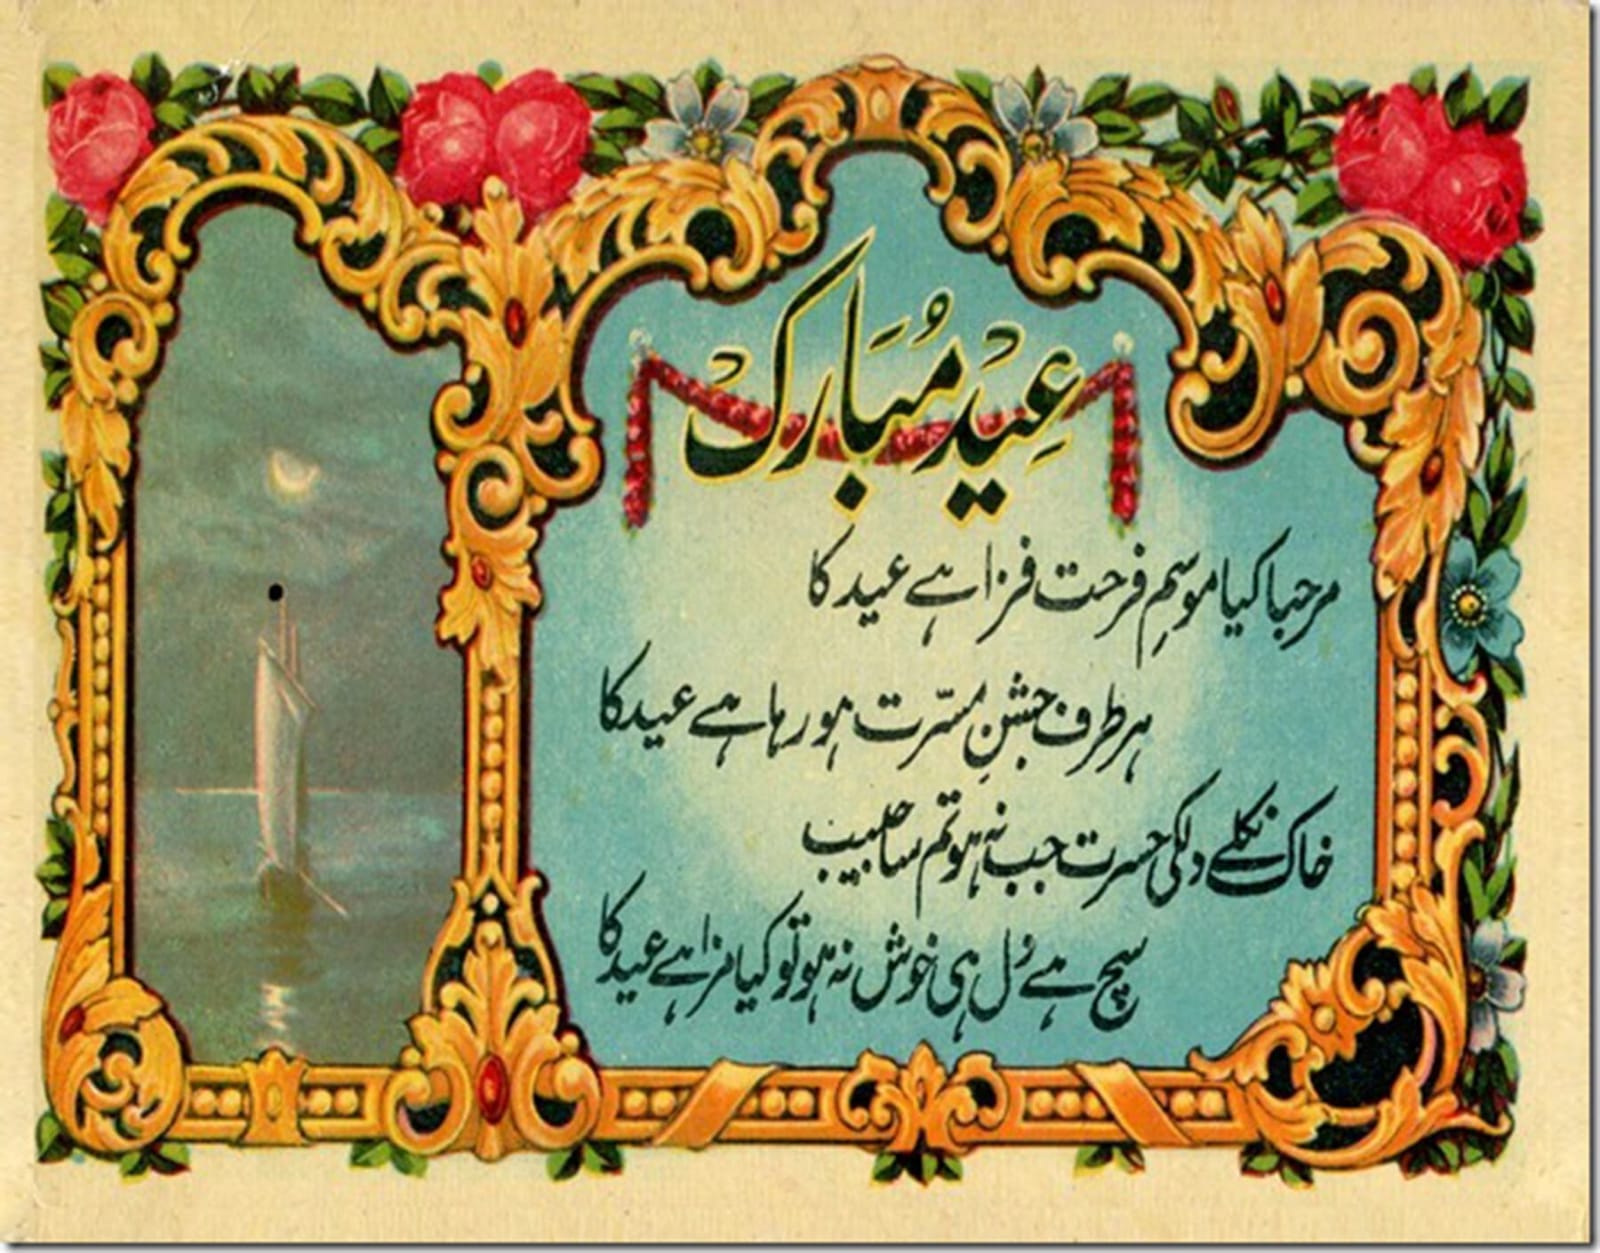 عِیْد مُبَارک
مرحبا کیا موسمِ فرحت فزا ہے عید کا
ہر طرف جشنِ مسّرت ہو رہا ہے عید کا
خاک نکلے دلکی حسرت جب نہ ہو تم سا حبیب
سچ ہے دُل ہی خوش نہ ہو تو کیا مزا ہے عید کا